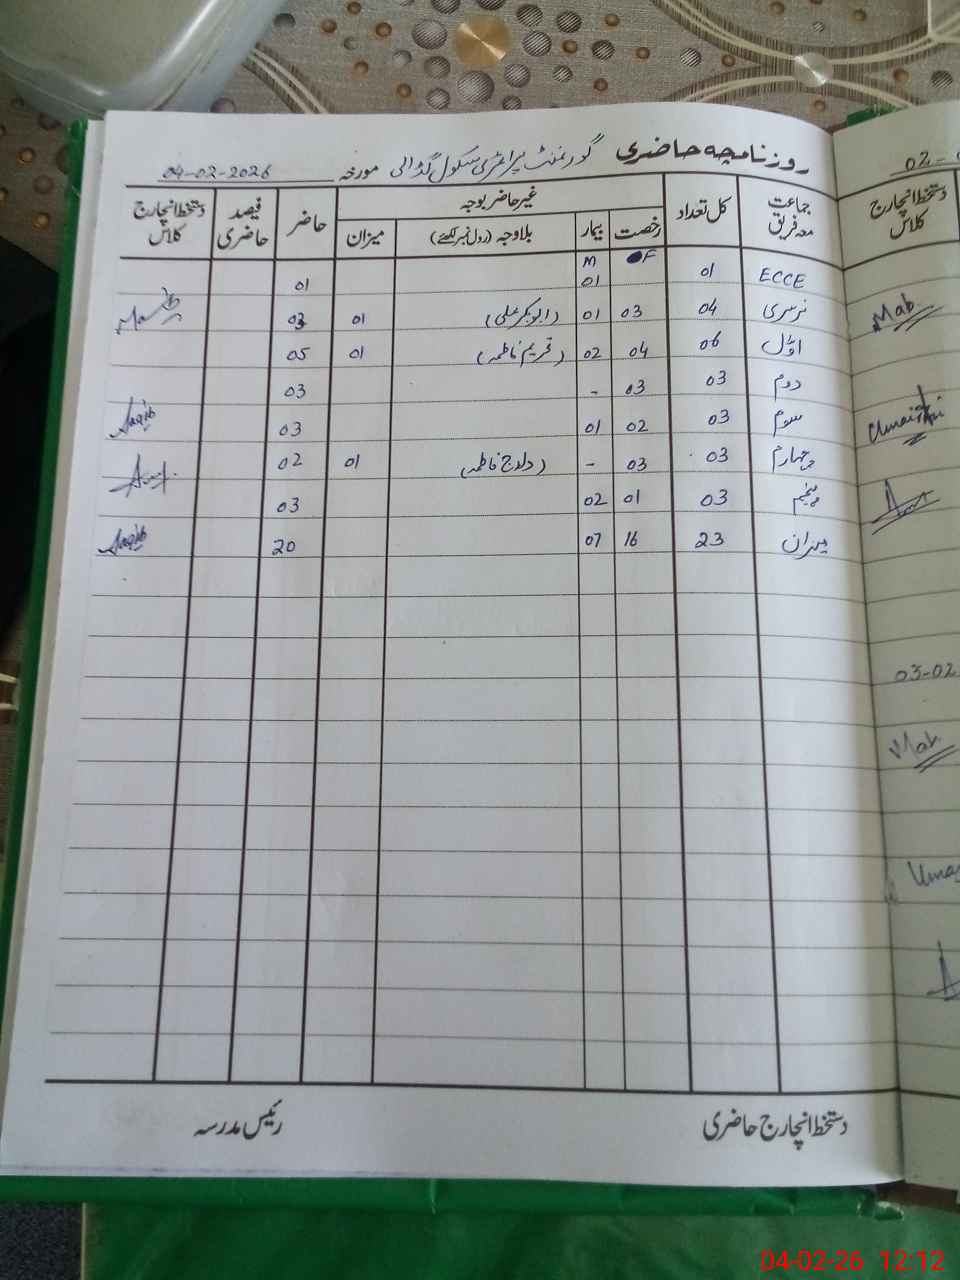 روزنامچہ حاضری گورنمنٹ پرائمری سکول گڈالی مورخہ 04-02-2026
جماعت معہ فریق کل تعداد غیر حاضر بوجہ حاضر فیصد حاضری دستخط انچارج کلاس
رخصت بیمار بلاوجہ (رول نمبر لکھئے) میزان
F M
ECCE 01 01 01
نرسری 04 03 01 (ابوبکر علی) 01 03
اوّل 06 04 02 (تحریم فاطمہ) 01 05
دوم 03 03 - 03
سوم 03 02 01 03 Saqib
چہارم 03 03 - فاطمہ) 01 02
پنجم 03 01 02 03
میزان 23 16 07 20 Saqib
دستخط انچارج حاضری رئیس مدرسہ
02-
دستخط انچارج کلاس
Mab.
03-02
04-02-26 12:12